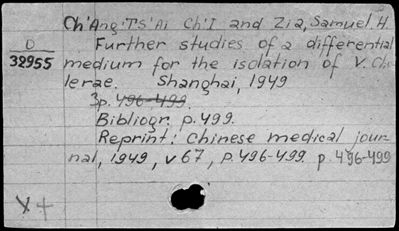 Ch'Ang·T'S'Ai Ch'I and Zia, Samuel. H.
D
32955
Further studies of a differential
medium for the isolation of V. Cho
lerae. Shanghai, 1949
3p. 496-499.
Bibliogr. p. 499.
Reprint: Chinese medical jour
nal, 1949, v 67, p. 496-499. p. 496-499
X +